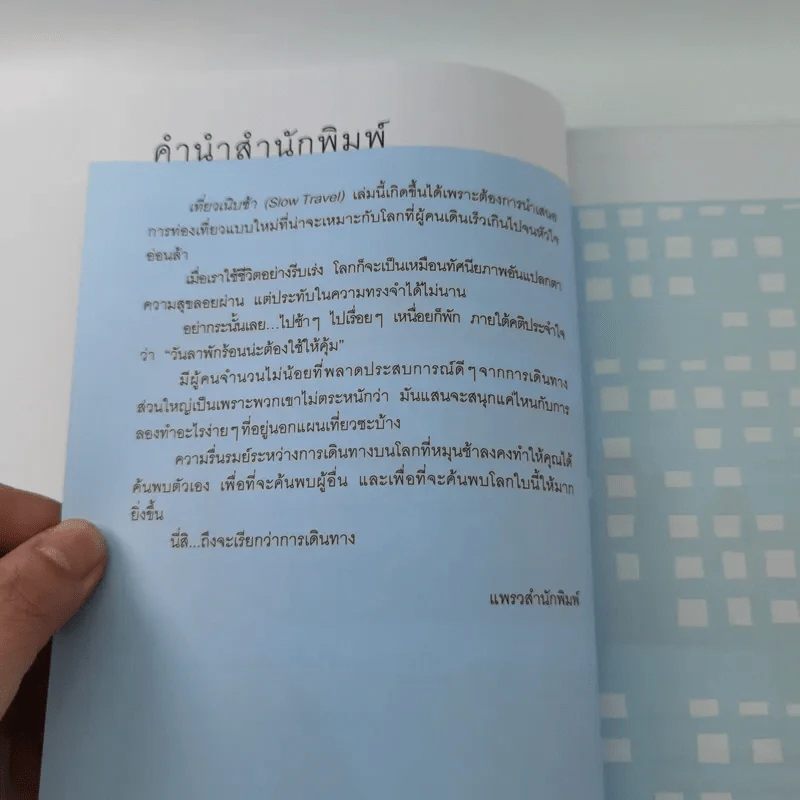 คำนำสำนักพิมพ์
เที่ยวเนิบช้า (Slow Travel) เล่มนี้เกิดขึ้นได้เพราะต้องการนำเสนอ
การท่องเที่ยวแบบใหม่ที่น่าจะเหมาะกับโลกที่ผู้คนเดินเร็วเกินไปจนหัวใจ
อ่อนล้า
เมื่อเราใช้ชีวิตอย่างรีบเร่ง โลกก็จะเป็นเหมือนทัศนียภาพอันแปลกตา
ความสุขลอยผ่าน แต่ประทับในความทรงจำได้ไม่นาน
อย่ากระนั้นเลย...ไปช้าๆ ไปเรื่อยๆ เหนื่อยก็พัก ภายใต้คติประจำใจ
ว่า “วันลาพักร้อนน่ะต้องใช้ให้คุ้ม”
มีผู้คนจำนวนไม่น้อยที่พลาดประสบการณ์ดีๆจากการเดินทาง
ส่วนใหญ่เป็นเพราะพวกเขาไม่ตระหนักว่า มันแสนจะสนุกแค่ไหนกับการ
ลองทำอะไรง่ายๆที่อยู่นอกแผนเที่ยวซะบ้าง
ความรื่นรมย์ระหว่างการเดินทางบนโลกที่หมุนช้าลงคงทำให้คุณได้
ค้นพบตัวเอง เพื่อที่จะค้นพบผู้อื่น และเพื่อที่จะค้นพบโลกใบนี้ให้มาก
ยิ่งขึ้น
นี่สิ...ถึงจะเรียกว่าการเดินทาง
แพรวสำนักพิมพ์